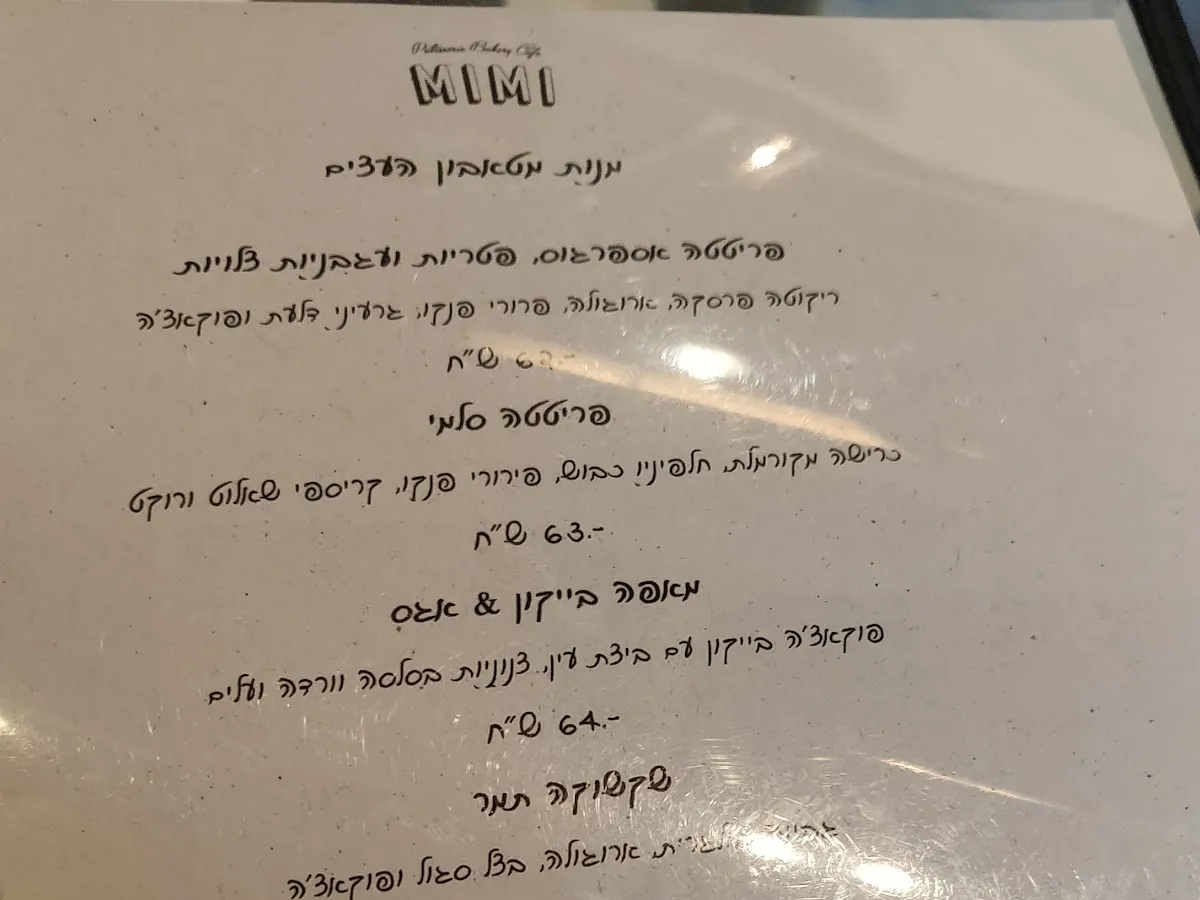 Patisserie Bakery Cafe
MIMI
מנות מטאבון העצים
פריטטה אספרגוס, פטריות ועגבניות צלויות
ריקוטה פרסקה, ארוגולה, פרורי פנקו, גרעיני דלעת ופוקאצ'ה
63.- ש"ח
פריטטה סלמי
כרישה מקורמלת, חלפיניו כבוש, פירורי פנקו, קריספי שאלוט ורוקט
63.- ש"ח
מאפה בייקון & אגס
פוקאצ'ה בייקון עם ביצת עין, צנוניות בסלסה וורדה ועלים
64.- ש"ח
שקשוקה תמר
ארוגולה, בצל סגול ופוקאצ'ה